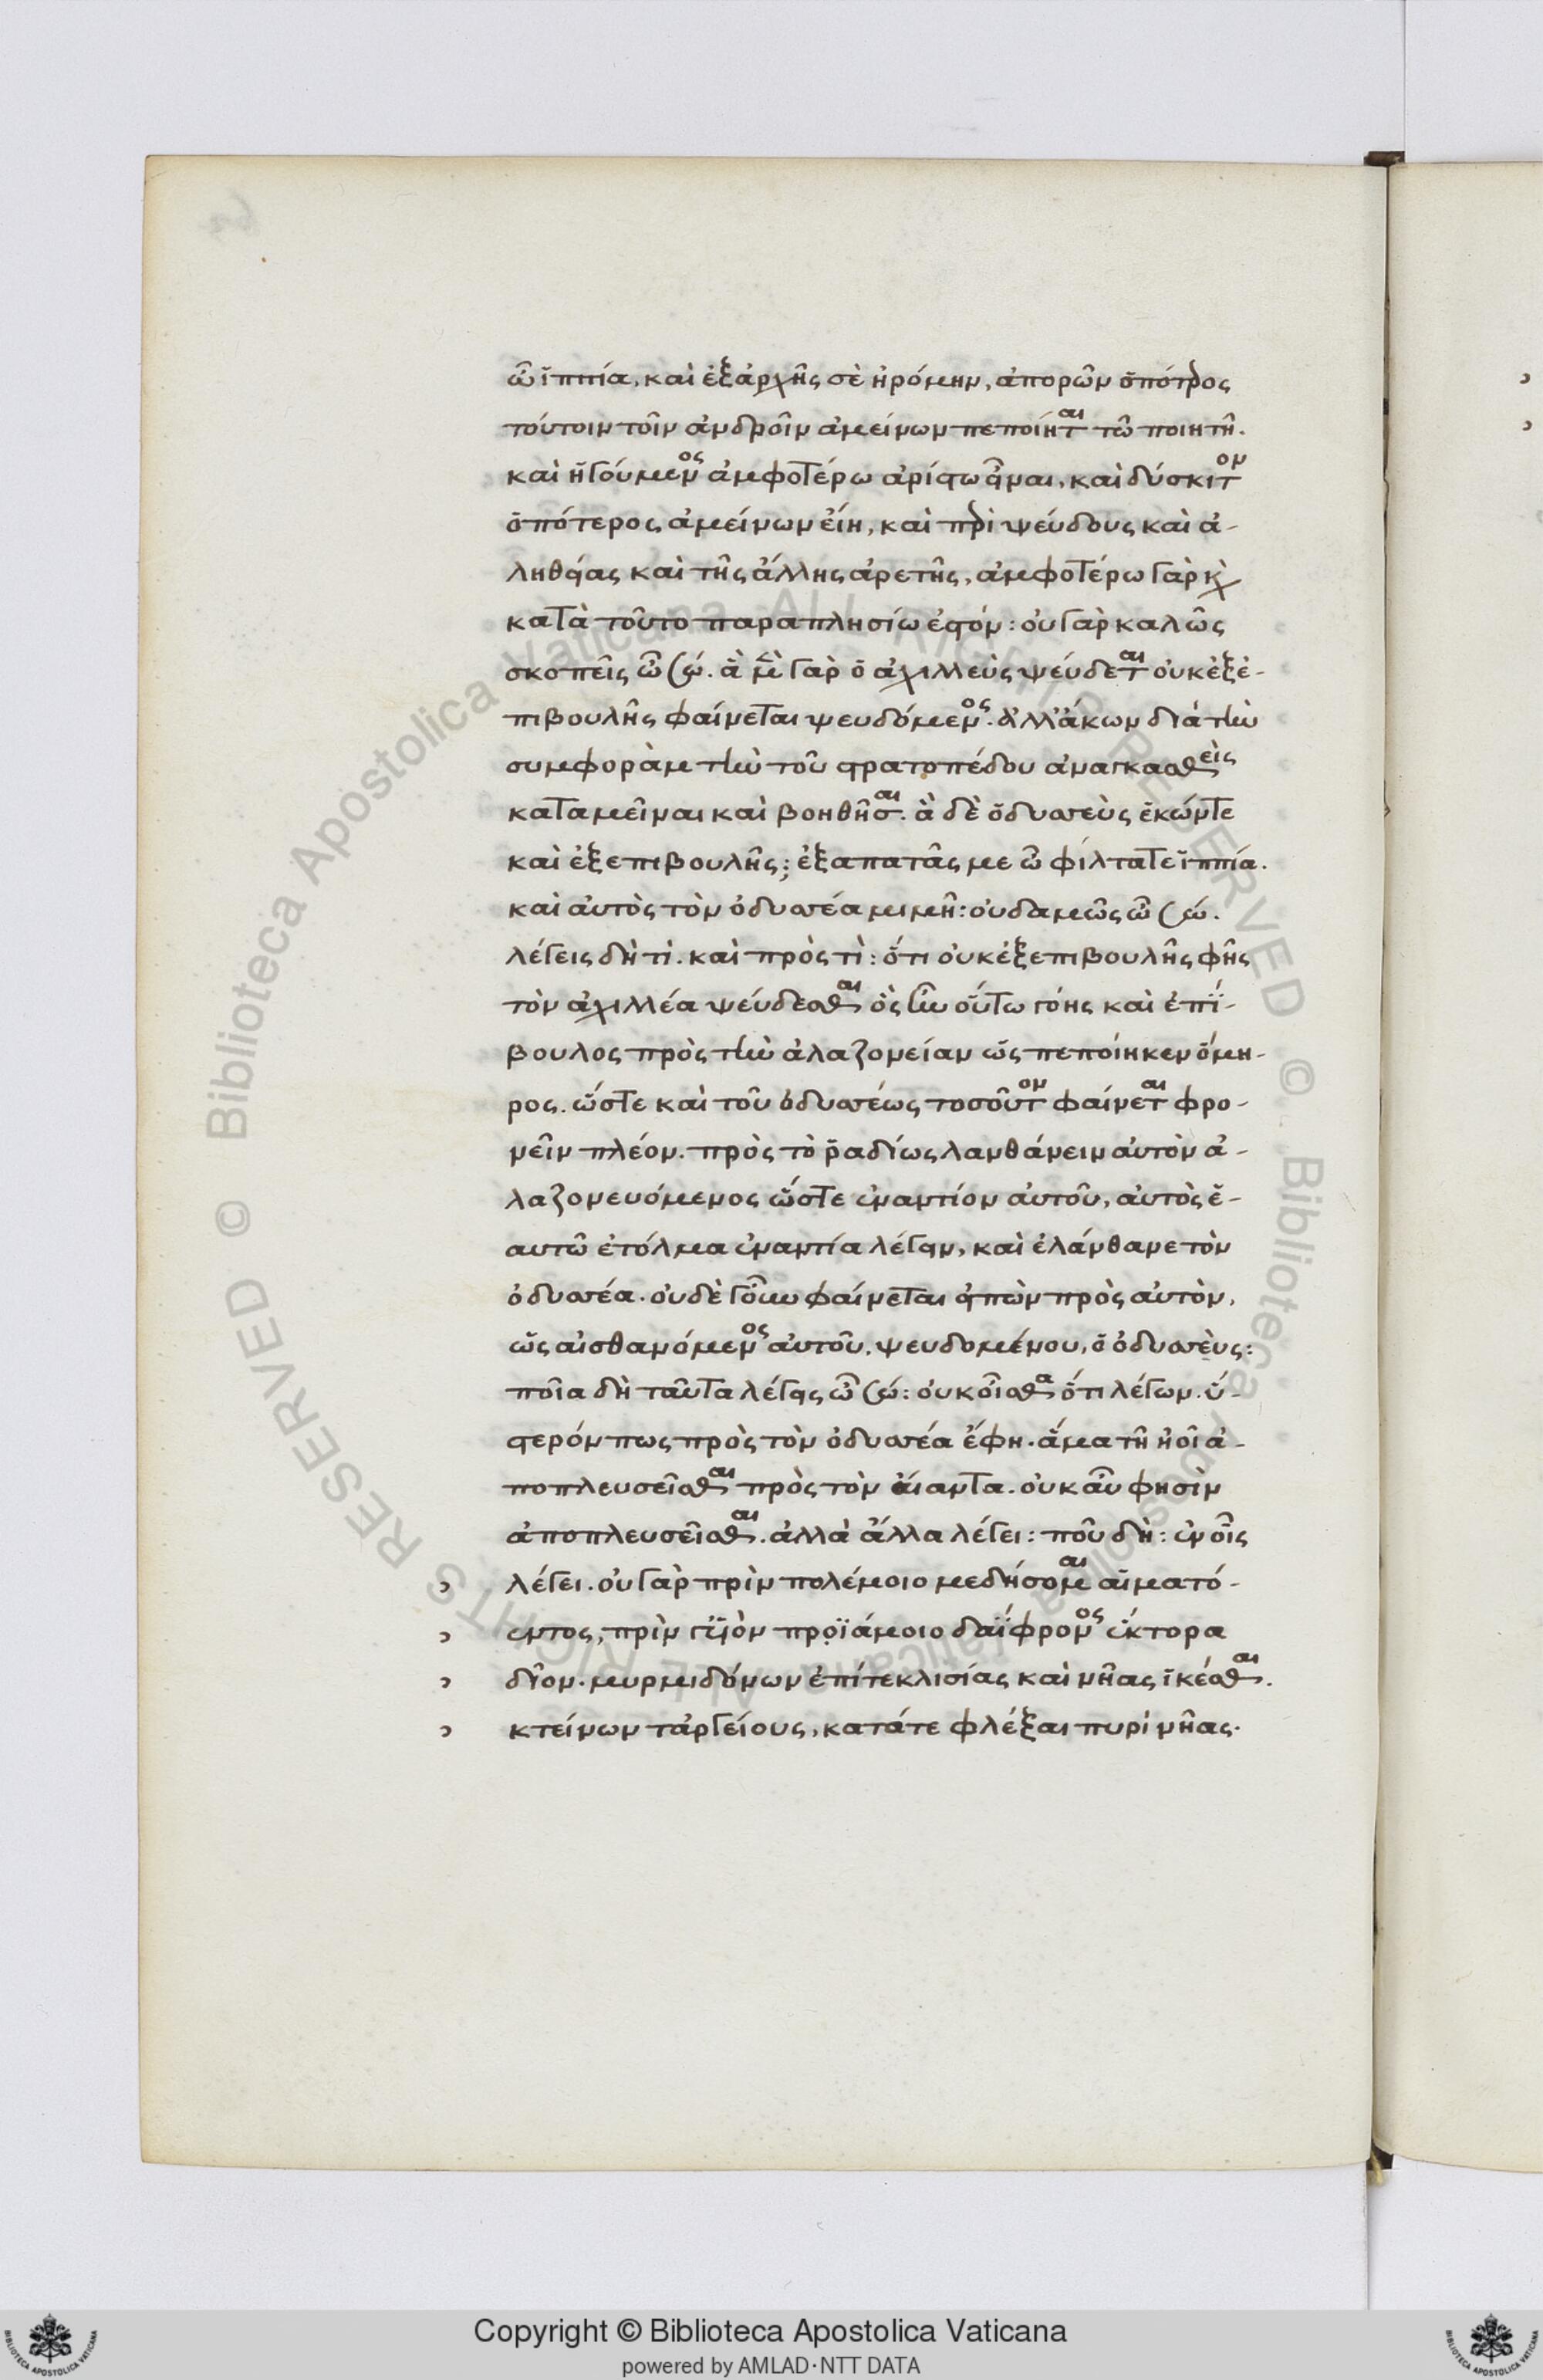 ὦ ἱππία, καὶ ἐξαρχῆς σὲ ἠρόμην, ἀπορῶν ὁπότρος
τούτοιν τοῖν ἀνδροῖν ἀμείνων πεποίηται τῶ ποιητῆ.
καὶ ἡγούμενος ἀμφοτέρω ἀρίστω εἶναι, καὶ δύσκιτον
ὁπότερος ἀμείνων εἴη, καὶ πρὶ ψεύδους καὶ ἀ-
ληθείας καὶ τῆς ἄλλης ἀρετῆς, ἀμφοτέρω γὰρ κὶ
κατὰ τοῦτο παραπλησίω ἐστόν: οὐ γὰρ καλῶς
σκοπεῖς ὦ σώ. ἃ μὲν γὰρ ὁ ἀχιλλεὺς ψεύδεται οὐκ ἐξ ἐ-
πιβουλῆς φαίνεται ψευδόμενος. ἀλλ' ἄκων διά τὴν
συμφορὰν τὴν τοῦ στρατοπέδου ἀναγκασθεὶς
καταμεῖναι καὶ βοηθῆσαι. ἃ δὲ ὁδυσσεὺς ἑκών τε
καὶ ἐξ επιβουλῆς; ἐξαπατᾶς με ὦ φίλτατε ἱππία.
καὶ αὐτὸς τὸν ὀδυσσέα μιμῆ: οὐδαμῶς ὦ σώ.
λέγεις δὴ τί. καὶ πρὸς τὶ: ὅτι οὐκ ἐξ επιβουλῆς φῆς
τὸν ἀχιλλέα ψεύδεσθαι ὃς ἦν οὕτω γόης καὶ ἐπί-
βουλος πρὸς τὴν ἀλαζονείαν ὡς πεποίηκεν ὅμη-
ρος. ὥστε καὶ τοῦ ὀδυσσέως τοσοῦτον φαίνεται φρο-
νεῖν πλέον. πρὸς τὸ ῥαδίως λανθάνειν αὐτὸν ἀ-
λαζονευόμενος ὥστε ἐναντίον αὐτοῦ, αὐτὸς ἑ-
αυτῶ ἐτόλμα ἐναντία λέγειν, καὶ ἐλάνθανε τὸν
ὀδυσσέα. οὐδὲ γοῦν φαίνεται εἰπὼν πρὸς αὐτὸν,
ὡς αἰσθανόμενος αὐτοῦ, ψευδομένου, ὁ ὀδυσσεὺς:
ποῖα δὴ ταῦτα λέγεις ὦ σώ: οὐκ οἶσθα ὅτι λέγων. ὕ-
στερόν πως πρὸς τὸν ὀδυσσέα ἔφη. ἅμα τῆ ἠοῖ ἀ-
ποπλευσεῖσθαι πρὸς τὸν αἴαντα. οὐκ αὖ φησὶν
ἀποπλευσεῖσθαι. ἀλλὰ ἄλλα λέγει: ποῦ δὴ: ἐν οἷς
λέγει. οὐ γὰρ πρὶν πολέμοιο μεδήσομαι αἱματό-
εντος, πρὶν γ' υἱὸν πρϊάμοιο δαΐφρονος ἕκτορα
δῖον. μυρμιδόνων ἐπί τε κλισίας καὶ νῆας ἱκέσθαι.
κτείνων τ' ἀργείους, κατά τε φλέξαι πυρὶ νῆας.
Copyright © Biblioteca Apostolica Vaticana
powered by AMLAD·NTT DATA